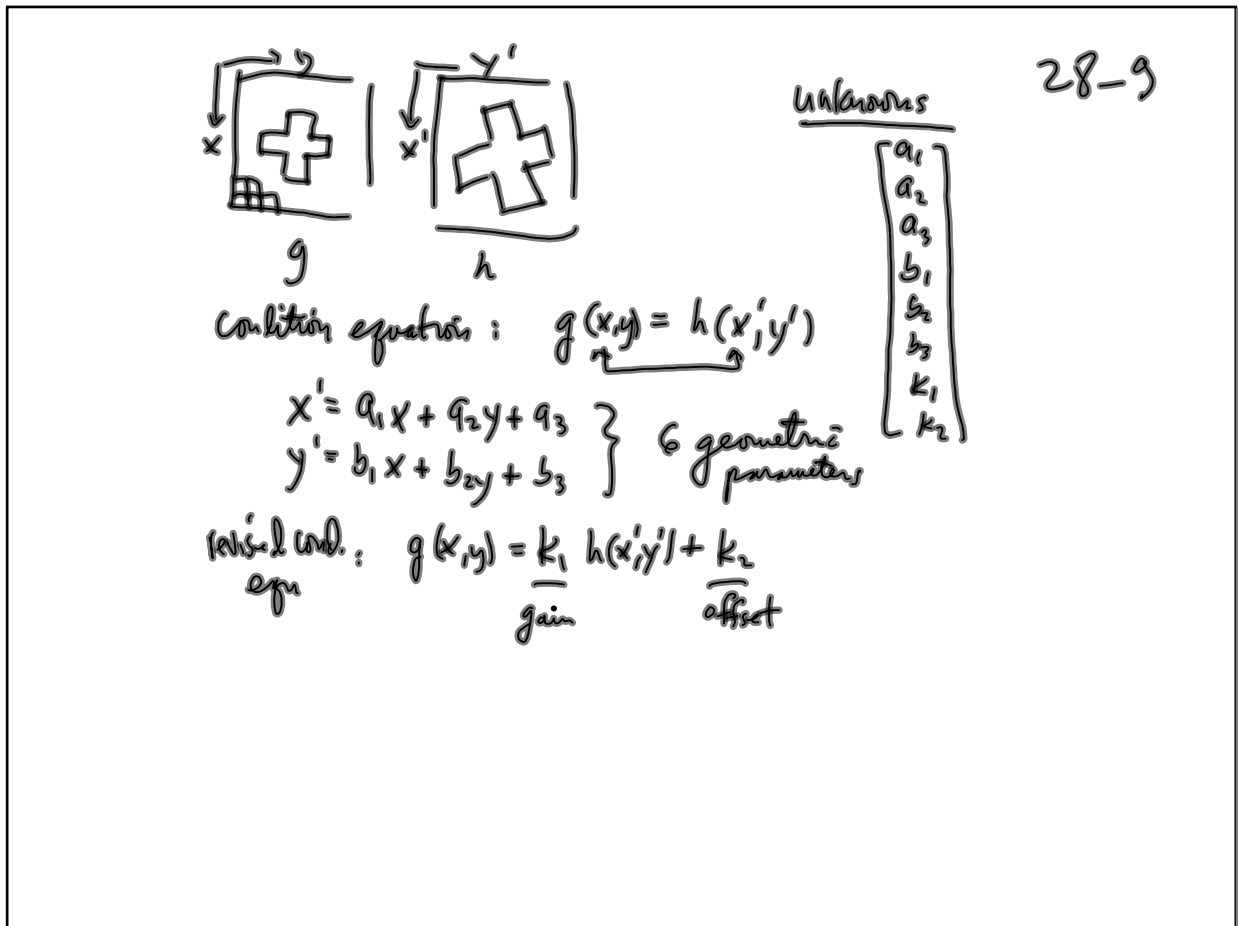 28-9
y y'
x x'
g h
unknowns
a₁
a₂
a₃
b₁
b₂
b₃
k₁
k₂
condition equation : g(x,y) = h(x',y')
x' = a₁x + a₂y + a₃
y' = b₁x + b₂y + b₃
6 geometric
parameters
revised cond. : g(x,y) = k₁ h(x',y') + k₂
eqn
gain offset